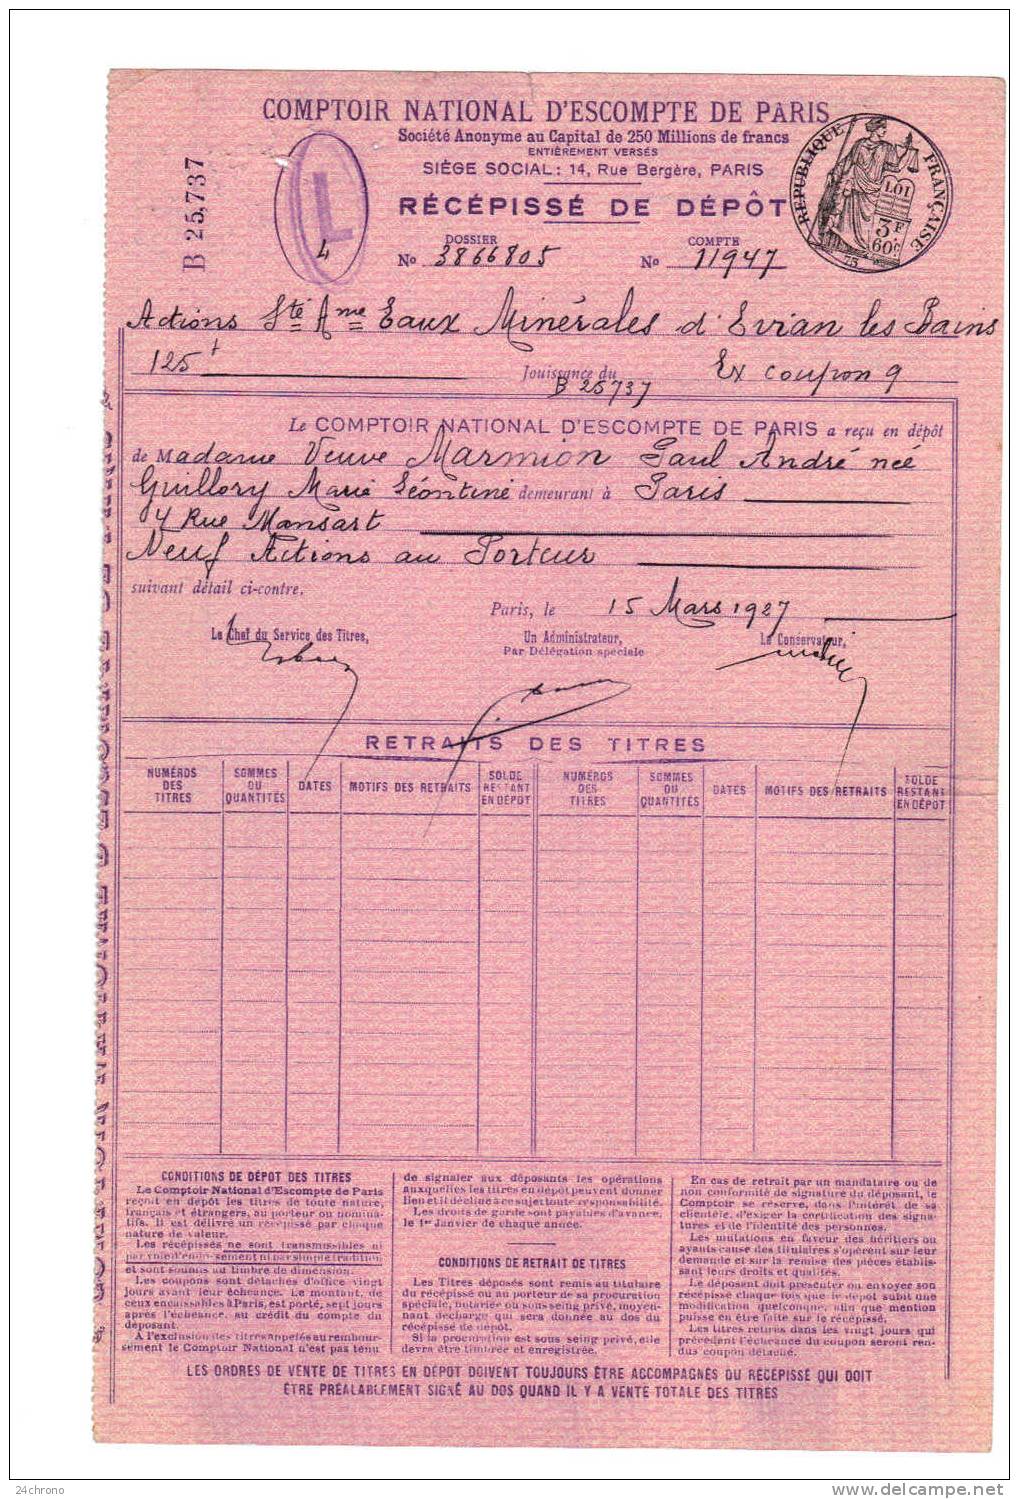 COMPTOIR NATIONAL D'ESCOMPTE DE PARIS
Société Anonyme au Capital de 250 Millions de francs
ENTIÈREMENT VERSÉS
SIÈGE SOCIAL: 14, Rue Bergère, PARIS
RÉCÉPISSÉ DE DÉPÔT
B 25,737
L
4
RÉPUBLIQUE FRANÇAISE
LOI
3F
60c
75
DOSSIER
No 3866805
COMPTE
No 11947
Actions Sté Ame Eaux Minérales d'Evian les Bains
125 f Jouissance du Ex coupon 9
B 25737
Le COMPTOIR NATIONAL D'ESCOMPTE DE PARIS a reçu en dépôt
de Madame Veuve Marmion Paul André née
Guillory Marie Léontine demeurant à Paris
4 Rue Mansart
Neuf Actions au Porteur
suivant détail ci-contre.
Paris, le 15 Mars 1927
Le Chef du Service des Titres,
Un Administrateur,
Par Délégation spéciale
Le Conservateur,
RETRAITS DES TITRES
NUMÉROS DES TITRES SOMMES OU QUANTITÉS DATES MOTIFS DES RETRAITS SOLDE RESTANT EN DÉPÔT NUMÉROS DES TITRES SOMMES OU QUANTITÉS DATES MOTIFS DES RETRAITS SOLDE RESTANT EN DÉPÔT
CONDITIONS DE DÉPOT DES TITRES
Le Comptoir National d'Escompte de Paris
reçoit en dépôt les titres de toute nature,
français et étrangers, au porteur ou nomina-
tifs. Il est délivré un récépissé par chaque
nature de valeur.
Les récépissés ne sont transmissibles ni
par voie d'endossement ni par simple tradition
et sont soumis au timbre de dimension.
Les coupons sont détachés d'office vingt
jours avant leur échéance. Le montant, de
ceux encaissables à Paris, est porté, sept jours
après l'échéance, au crédit du compte du
déposant.
A l'exclusion des titres appelés au rembour-
sement le Comptoir National n'est pas tenu
de signaler aux déposants les opérations
auxquelles les titres en dépôt peuvent donner
lieu et il décline à ce sujet toute responsabilité.
Les droits de garde sont payables d'avance,
le 1er Janvier de chaque année.
CONDITIONS DE RETRAIT DE TITRES
Les Titres déposés sont remis au titulaire
du récépissé ou au porteur de sa procuration
spéciale, notariée ou sous seing privé, moyen-
nant décharge qui sera donnée au dos du
récépissé de dépôt.
Si la procuration est sous seing privé, elle
devra être timbrée et enregistrée.
En cas de retrait par un mandataire ou de
non conformité de signature du déposant, le
Comptoir se réserve, dans l'intérêt de sa
clientèle, d'exiger la certification des signa-
tures et de l'identité des personnes.
Les mutations en faveur des héritiers ou
ayants cause des titulaires s'opèrent sur leur
demande et sur la remise des pièces établis-
sant leurs droits et qualités.
Le déposant doit présenter ou envoyer son
récépissé chaque fois que le dépôt subit une
modification quelconque, afin que mention
puisse en être faite sur le récépissé.
Les titres retirés dans les vingt jours qui
précèdent l'échéance du coupon seront ren-
dus coupon détaché.
LES ORDRES DE VENTE DE TITRES EN DÉPÔT DOIVENT TOUJOURS ÊTRE ACCOMPAGNÉS DU RÉCÉPISSÉ QUI DOIT
ÊTRE PRÉALABLEMENT SIGNÉ AU DOS QUAND IL Y A VENTE TOTALE DES TITRES
24chrono
delcampe.net